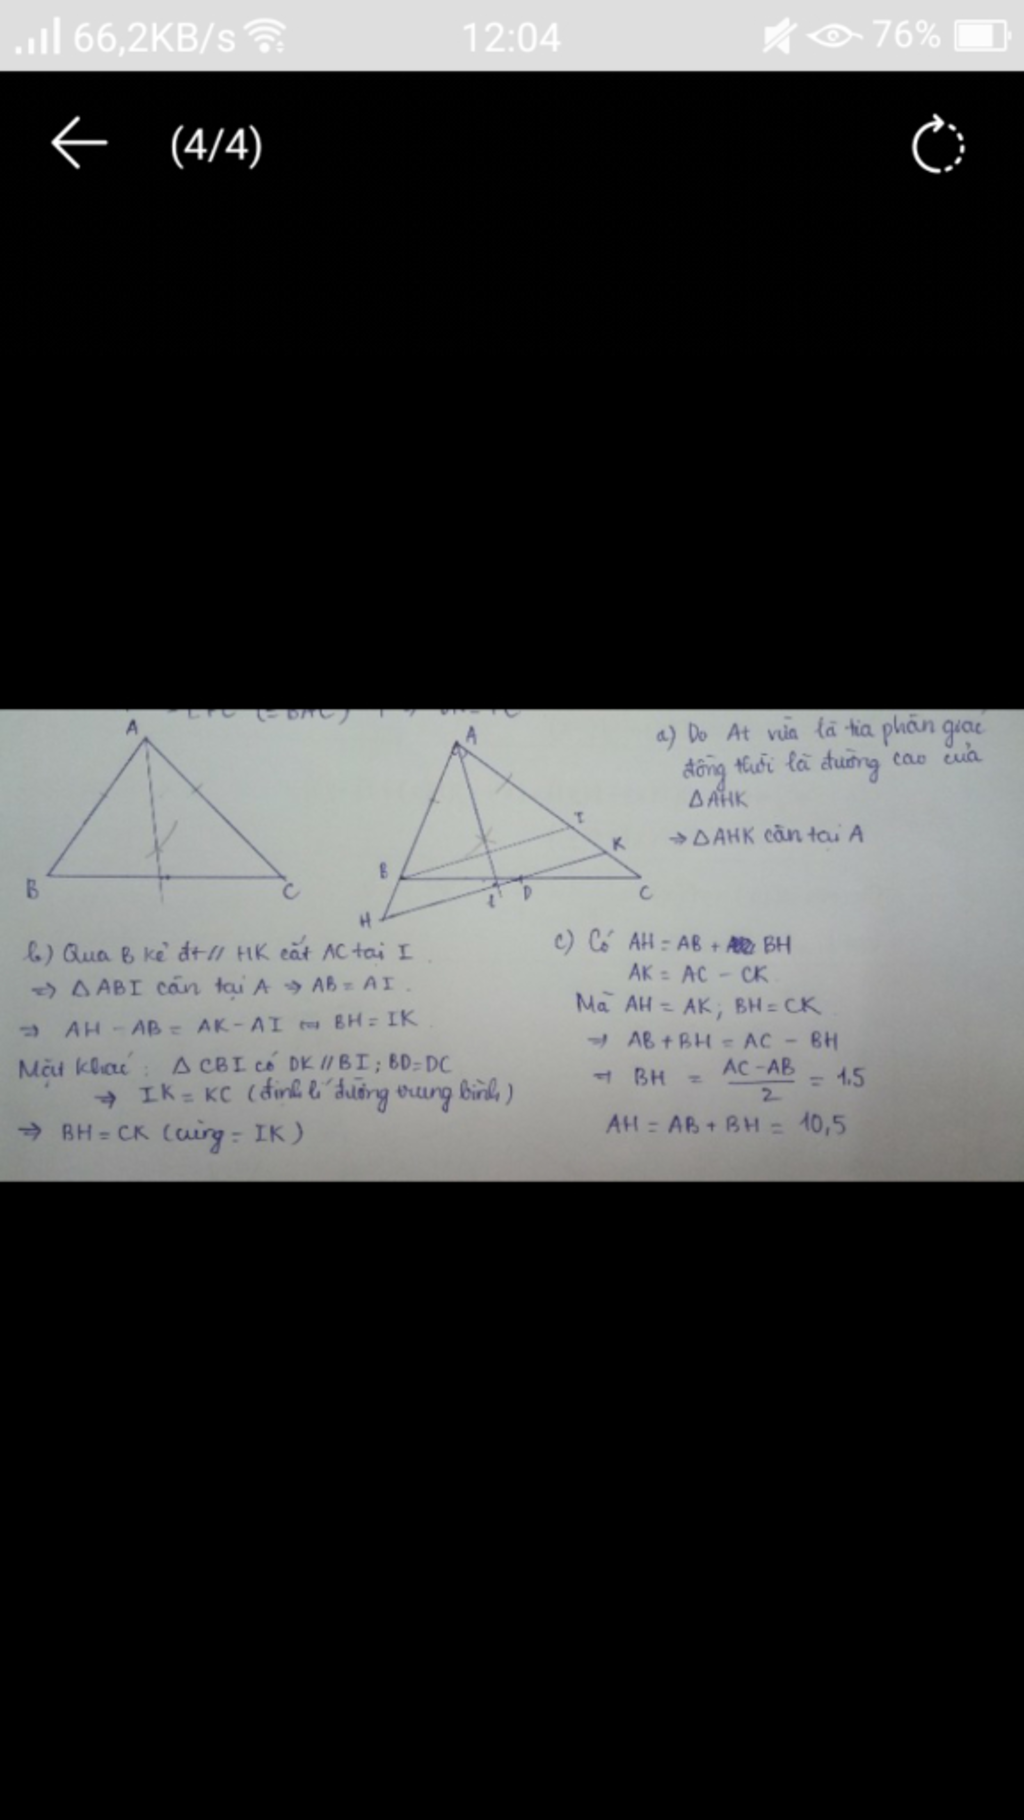 66,2KB/s 12:04 76%
(4/4)
A
B
C
A
B
H
I
K
t
D
C
a) Do At vừa là tia phân giác
đồng thời là đường cao của
ΔAHK
⇒ ΔAHK cân tại A
b) Qua B kẻ đt // HK cắt AC tại I
⇒ ΔABI cân tại A ⇒ AB = AI.
⇒ AH - AB = AK - AI ⇔ BH = IK
Mặt khác: ΔCBI có DK // BI; BD = DC
⇒ IK = KC (định lí đường trung bình)
⇒ BH = CK (cùng = IK)
c) Có AH = AB + BH
AK = AC - CK
Mà AH = AK; BH = CK
⇒ AB + BH = AC - BH
⇒ BH = AC - AB / 2 = 1,5
AH = AB + BH = 10,5